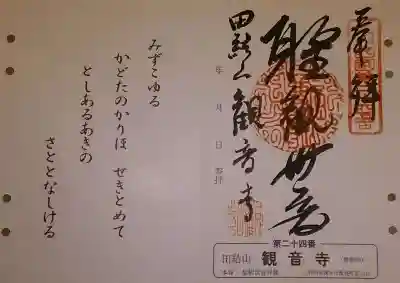 奉拝
聖観世音
田結山 観音寺
年 月 日 参拝
第二十四番
田結山 観音寺
みずこゆる
かどたのかりほ せきとめて
としあるあきの
さととなしける